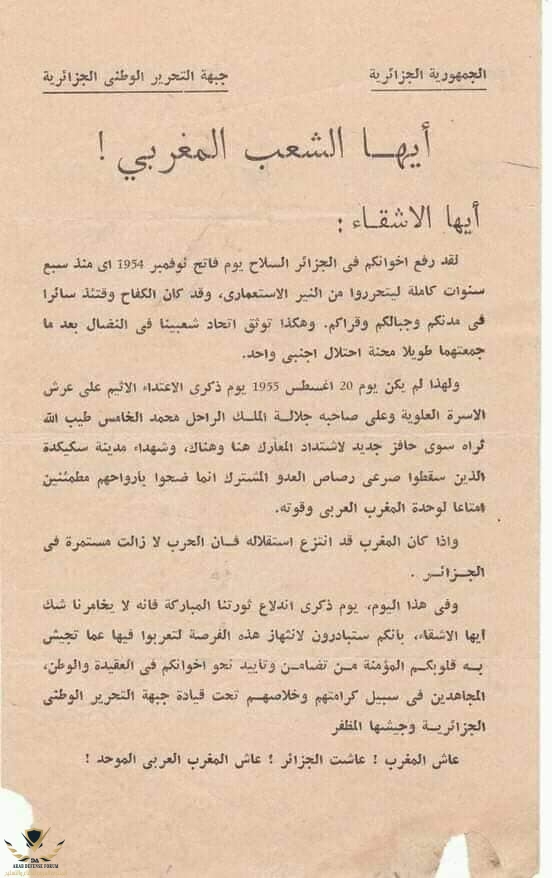 الجمهورية الجزائرية
جبهة التحرير الوطنى الجزائرية
أيها الشعب المغربي !
أيها الاشقاء :
لقد رفع اخوانكم فى الجزائر السلاح يوم فاتح نوفمبر 1954 اى منذ سبع
سنوات كاملة ليتحرروا من النير الاستعمارى، وقد كان الكفاح وقتئذ سائرا
فى مدنكم وجبالكم وقراكم. وهكذا توثق اتحاد شعبينا فى النضال بعد ما
جمعتهما طويلا محنة احتلال اجنبى واحد.
ولهذا لم يكن يوم 20 اغسطس 1955 يوم ذكرى الاعتداء الاثيم على عرش
الاسرة العلوية وعلى صاحبه جلالة الملك الراحل محمد الخامس طيب الله
ثراه سوى حافز جديد لاشتداد المعارك هنا وهناك، وشهداء مدينة سكيكدة
الذين سقطوا صرعى رصاص العدو المشترك انما ضحوا بأرواحهم مطمئنين
امتاعا لوحدة المغرب العربى وقوته.
واذا كان المغرب قد انتزع استقلاله فان الحرب لا زالت مستمرة فى
الجزائر .
وفى هذا اليوم، يوم ذكرى اندلاع ثورتنا المباركة فانه لا يخامرنا شك
أيها الاشقاء، بانكم ستبادرون لانتهاز هذه الفرصة لتعربوا فيها عما تجيش
به قلوبكم المؤمنة من تضامن وتأييد نحو اخوانكم فى العقيدة والوطن،
المجاهدين فى سبيل كرامتهم وخلاصهم تحت قيادة جبهة التحرير الوطنى
الجزائرية وجيشها المظفر
عاش المغرب ! عاشت الجزائر ! عاش المغرب العربى الموحد !
DA
ARAB DEFENSE FORUM